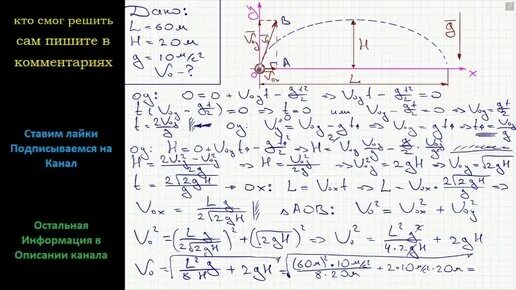 кто смог решить
сам пишите в
комментариях
Ставим лайки
Подписываемся на
Канал
Остальная
Информация в
Описании канала
Дано:
L = 60м
H = 20м
g = 10 м/с²
V₀ - ?
y
B
V₀y
V₀
A
V₀x
H
L
x
g
oy: 0 = 0 + V₀yt - gt²/2 ⇒ V₀yt - gt²/2 = 0
t(V₀y - gt/2) = 0 ⇒ t = 0 или V₀y - gt/2 = 0 ⇒ V₀y = gt/2
t = 2V₀y/g
oy: H = 0 + V₀yt₁ - gt₁²/2
H = 2V₀y² - V₀y²/2g ⇒ H = V₀y²/2g ⇒ V₀y² = 2gH ⇒ V₀y = √2gH
t = 2√2gH/g ⇒ ox: L = V₀xt ⇒ L = V₀x 2√2gH/g ⇒
V₀x = Lg/2√2gH ΔAOB: V₀² = V₀x² + V₀y²
V₀² = (Lg/2√2gH)² + (√2gH)² ⇒ V₀² = L²g²/4·2gH + 2gH
V₀ = √L²g/8H + 2gH = √(60м)²·10м/с²/8·20м + 2·10м/с²·20м =